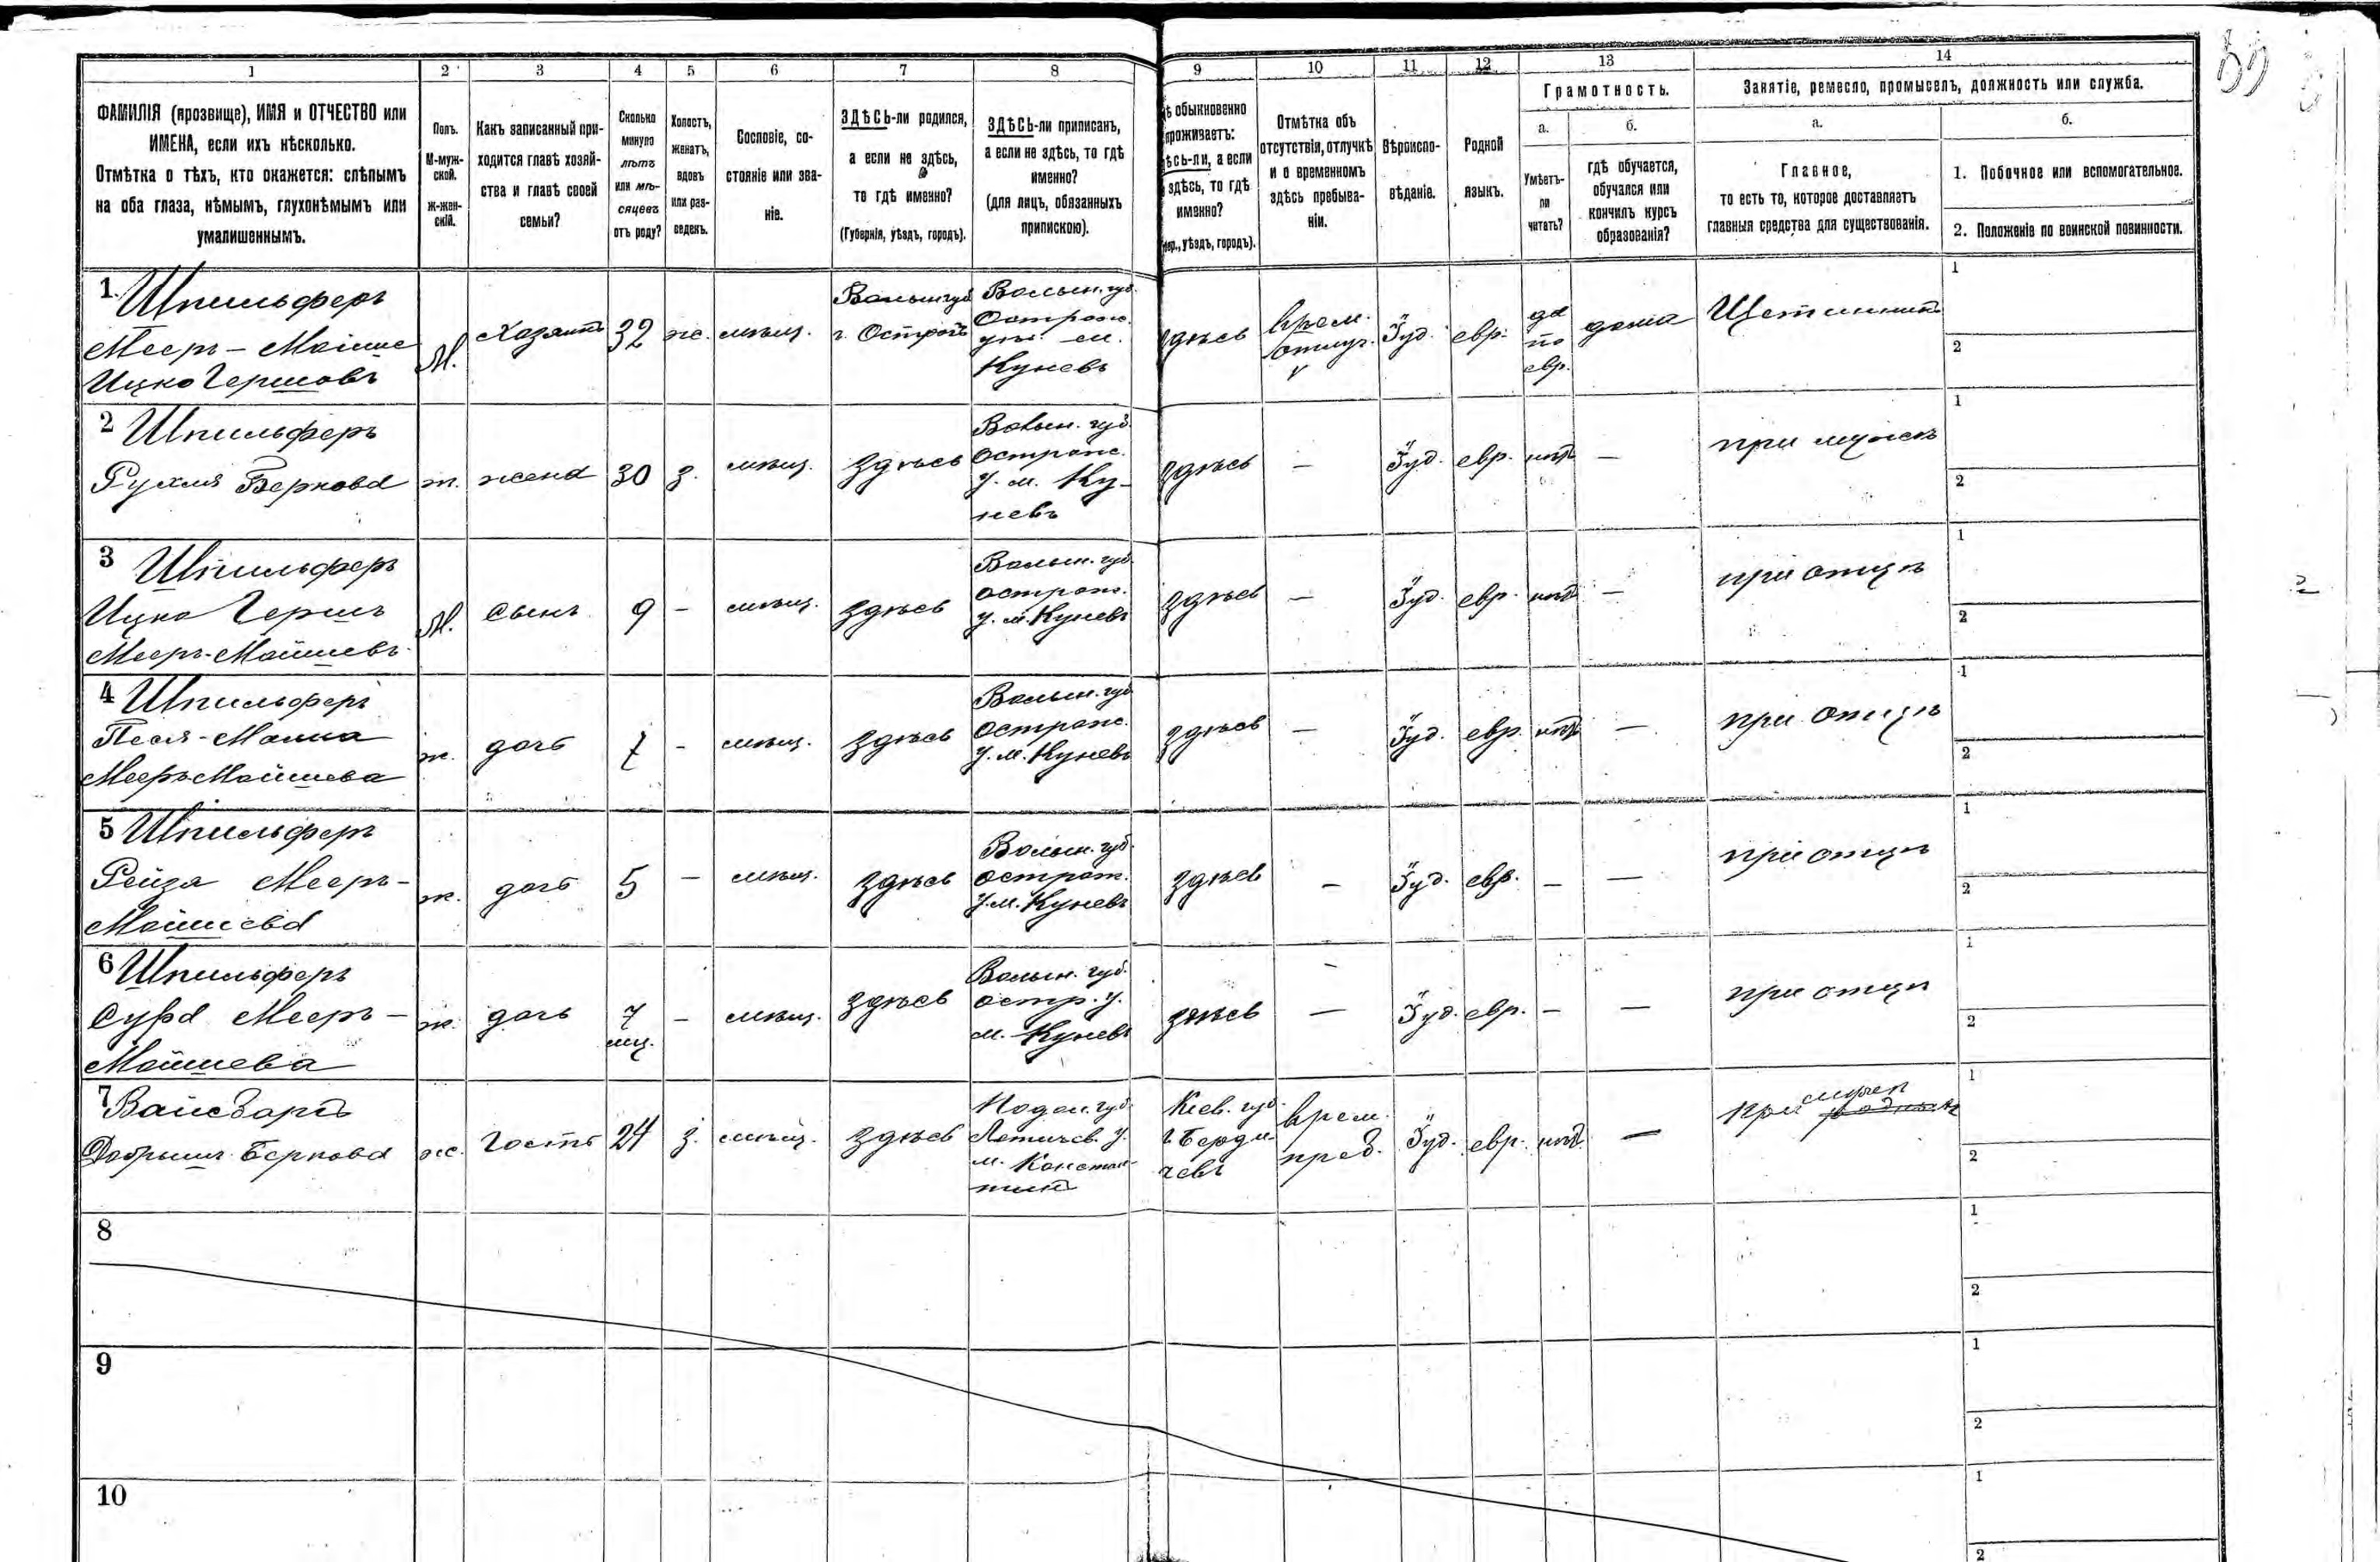 1 2 3 4 5 6 7 8 9 10 11 12 13 14
ФАМИЛІЯ (прозвище), ИМЯ и ОТЧЕСТВО или
ИМЕНА, если ихъ нѣсколько.
Отмѣтка о тѣхъ, кто окажется: слѣпымъ
на оба глаза, нѣмымъ, глухонѣмымъ или
умалишеннымъ.
Полъ.
М-муж-
ской.
Ж-жен-
скій.
Какъ записанный при-
ходится главѣ хозяй-
ства и главѣ своей
семьи?
Сколько
минуло
лѣтъ
или мѣ-
сяцевъ
отъ роду?
Холостъ,
женатъ,
вдовъ
или раз-
веденъ.
Сословіе, со-
стояніе или зва-
ніе.
ЗДѢСЬ-ли родился,
а если не здѣсь,
то гдѣ именно?
(Губернія, уѣздъ, городъ).
ЗДѢСЬ-ли приписанъ,
а если не здѣсь, то гдѣ
именно?
(для лицъ, обязанныхъ
припискою).
ѣ обыкновенно
проживаетъ:
ѣсь-ли, а если
здѣсь, то гдѣ
именно?
уѣздъ, городъ).
Отмѣтка объ
отсутствіи, отлучкѣ
и о временномъ
здѣсь пребыва-
ніи.
Вѣроиспо-
вѣданіе.
Родной
языкъ.
Грамотность.
а.
Умѣетъ-
ли
читать?
б.
гдѣ обучается,
обучался или
кончилъ курсъ
образованія?
Занятіе, ремесло, промыселъ, должность или служба.
а.
Главное,
то есть то, которое доставляетъ
главныя средства для существованія.
б.
1. Побочное или вспомогательное.
2. Положеніе по воинской повинности.
1 Шпильферъ
Мееръ-Мойше
Ицко Гершовъ
М.
Хозяинъ
32
ж.
мѣщ.
Волын губ
г. Острогъ
Волын. губ.
Острож.
уѣз. м.
Куневъ
здѣсь
врем.
отлуч.
Іуд.
евр.
да
по
евр.
дома
Щетинникъ
1
2
2 Шпильферъ
Рухля Беркова
ж.
жена
30
з.
мѣщ.
здѣсь
Волын. губ.
Острож.
у. м. Ку-
невъ
здѣсь
—
Іуд.
евр.
нѣтъ
—
при мужѣ
1
2
3 Шпильферъ
Ицко Гершъ
Мееръ-Мойшевъ
М.
Сынъ
9
-
мѣщ.
здѣсь
Волын. губ.
острож.
у. м. Куневъ
здѣсь
—
Іуд.
евр.
нѣтъ
—
при отцѣ
1
2
4 Шпильферъ
Песя-Малка
Мееръ Мойшева
ж.
дочь
7
-
мѣщ.
здѣсь
Волын. губ
острож.
у. м. Куневъ
здѣсь
—
Іуд.
евр.
нѣтъ
—
при отцѣ
1
2
5 Шпильферъ
Рейза Мееръ-
Мойшева
ж.
дочь
5
-
мѣщ.
здѣсь
Волын. губ.
острож.
у. м. Куневъ
здѣсь
-
Іуд.
евр.
-
—
при отцѣ
1
2
6 Шпильферъ
Сура Мееръ-
Мойшева
ж.
дочь
7
мц.
-
мѣщ.
здѣсь
Волын. губ.
остр. у.
м. Куневъ
здѣсь
—
Іуд.
евр.
-
—
при отцѣ
1
2
7 Вайсбартъ
Добрышъ Беркова
ж.
гостья
24
з.
мѣщ.
здѣсь
Подол. губ.
Летичев. у.
м. Констан-
тинъ
Кіев. губ.
г. Берди-
чевъ
врем.
преб.
Іуд.
евр.
нѣтъ
—
при мужѣ
1
2
8
1
2
9
1
2
10
1
2